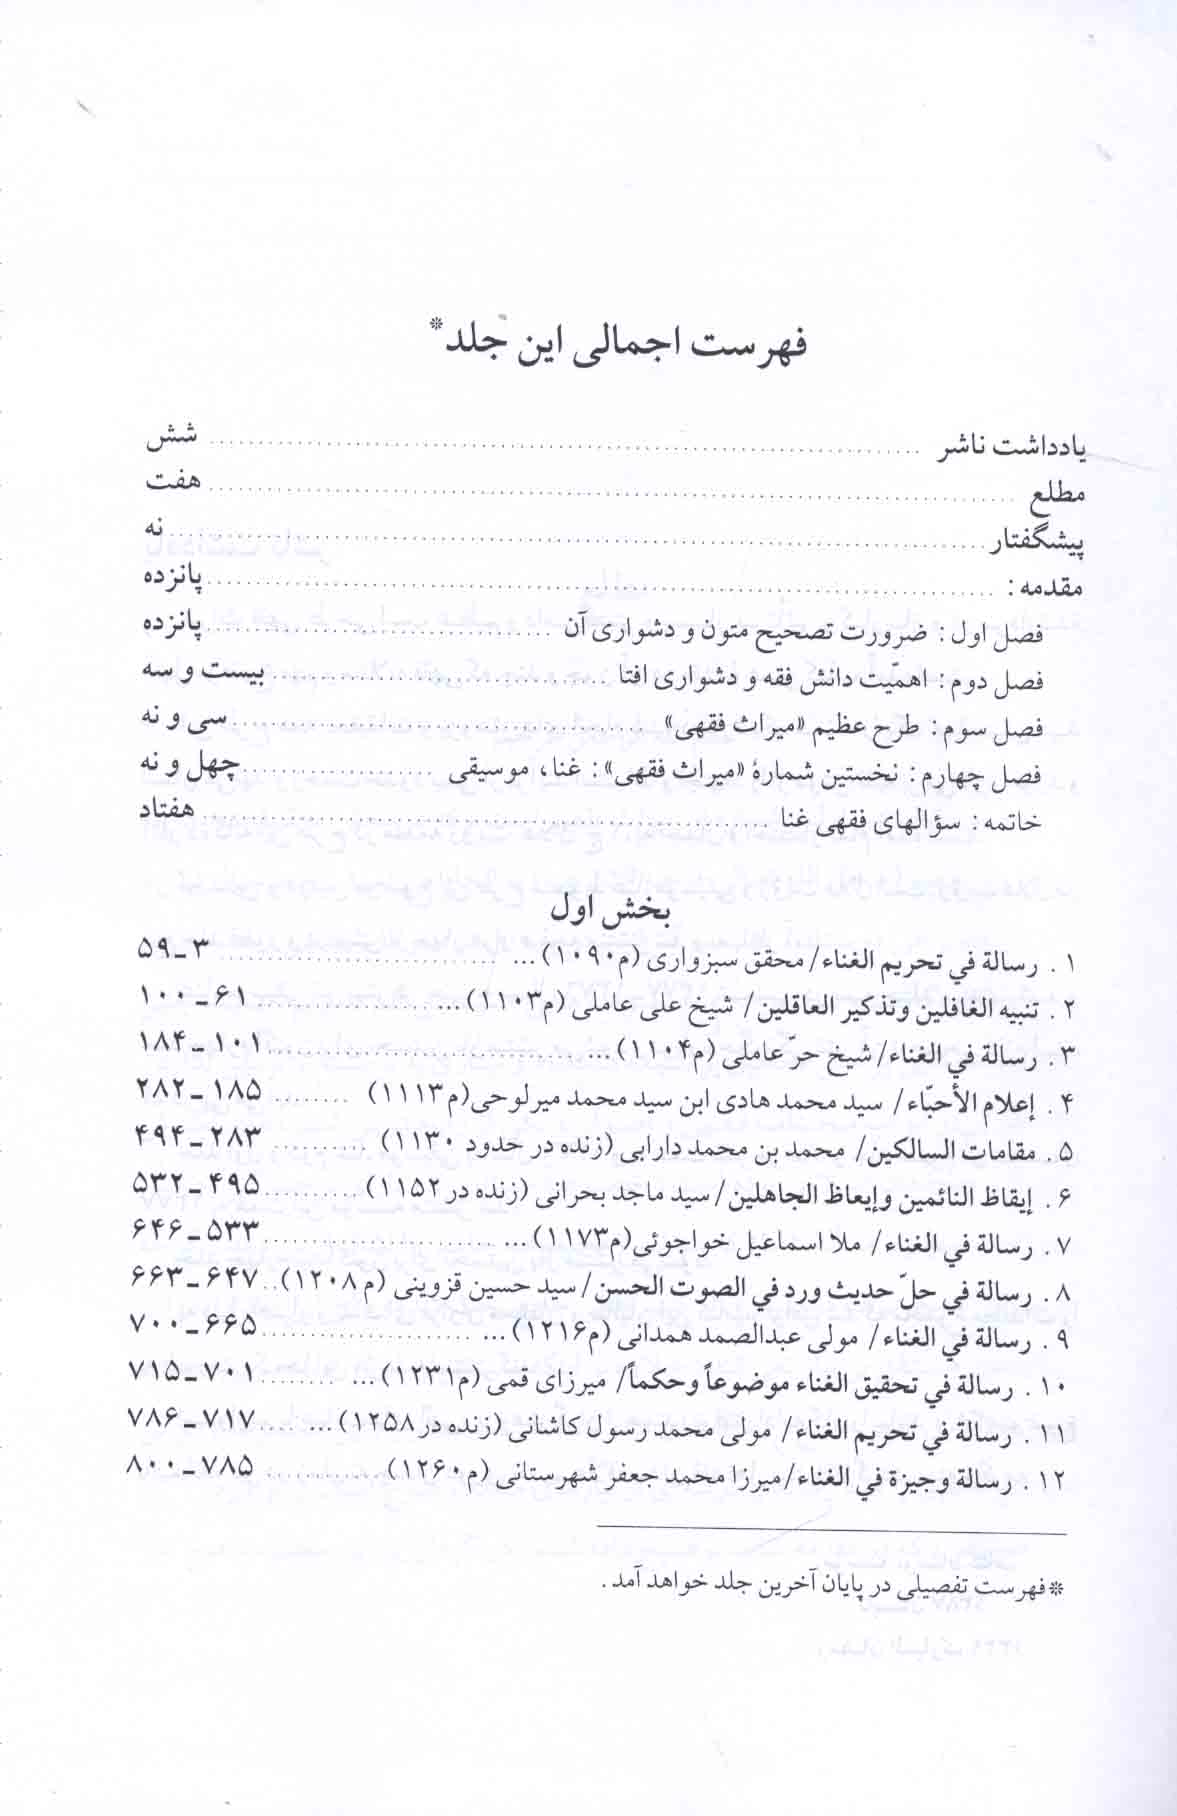 فهرست اجمالی این جلد*
یادداشت ناشر ........ شش
مطلع ........ هفت
پیشگفتار ........ نه
مقدمه: ........ پانزده
فصل اول: ضرورت تصحیح متون و دشواری آن ........ پانزده
فصل دوم: اهمّیت دانش فقه و دشواری افتا ........ بیست و سه
فصل سوم: طرح عظیم «میراث فقهی» ........ سی و نه
فصل چهارم: نخستین شمارهٔ «میراث فقهی»: غنا، موسیقی ........ چهل و نه
خاتمه: سؤالهای فقهی غنا ........ هفتاد
بخش اول
۱. رسالة في تحريم الغناء/ محقق سبزواری (م۱۰۹۰) ........ ۳ـ۵۹
۲. تنبيه الغافلين وتذكير العاقلين/ شیخ علی عاملی (م۱۱۰۳) ........ ۶۱ـ۱۰۰
۳. رسالة في الغناء/ شیخ حرّ عاملی (م۱۱۰۴) ........ ۱۰۱ـ۱۸۴
۴. إعلام الأحبّاء/ سید محمد هادی ابن سید محمد میرلوحی(م۱۱۱۳) ........ ۱۸۵ـ۲۸۲
۵. مقامات السالكين/ محمد بن محمد دارابی (زنده در حدود ۱۱۳۰) ........ ۲۸۳ـ۴۹۴
۶. إيقاظ النائمين وإيعاظ الجاهلين/ سید ماجد بحرانی (زنده در ۱۱۵۲) ........ ۴۹۵ـ۵۳۲
۷. رسالة في الغناء/ ملا اسماعیل خواجوئی(م۱۱۷۳) ........ ۵۳۳ـ۶۴۶
۸. رسالة في حلّ حديث ورد في الصوت الحسن/ سید حسین قزوینی (م۱۲۰۸) .. ۶۴۷ـ۶۶۳
۹. رسالة في الغناء/ مولی عبدالصمد همدانی (م۱۲۱۶) ........ ۶۶۵ـ۷۰۰
۱۰. رسالة في تحقيق الغناء موضوعاً وحكماً/ میرزای قمی (م۱۲۳۱) ........ ۷۰۱ـ۷۱۵
۱۱. رسالة في تحريم الغناء/ مولی محمد رسول کاشانی (زنده در ۱۲۵۸) ........ ۷۱۷ـ۷۸۶
۱۲. رسالة وجيزة في الغناء/میرزا محمد جعفر شهرستانی (م۱۲۶۰) ........ ۷۸۵ـ۸۰۰
* فهرست تفصیلی در پایان آخرین جلد خواهد آمد.